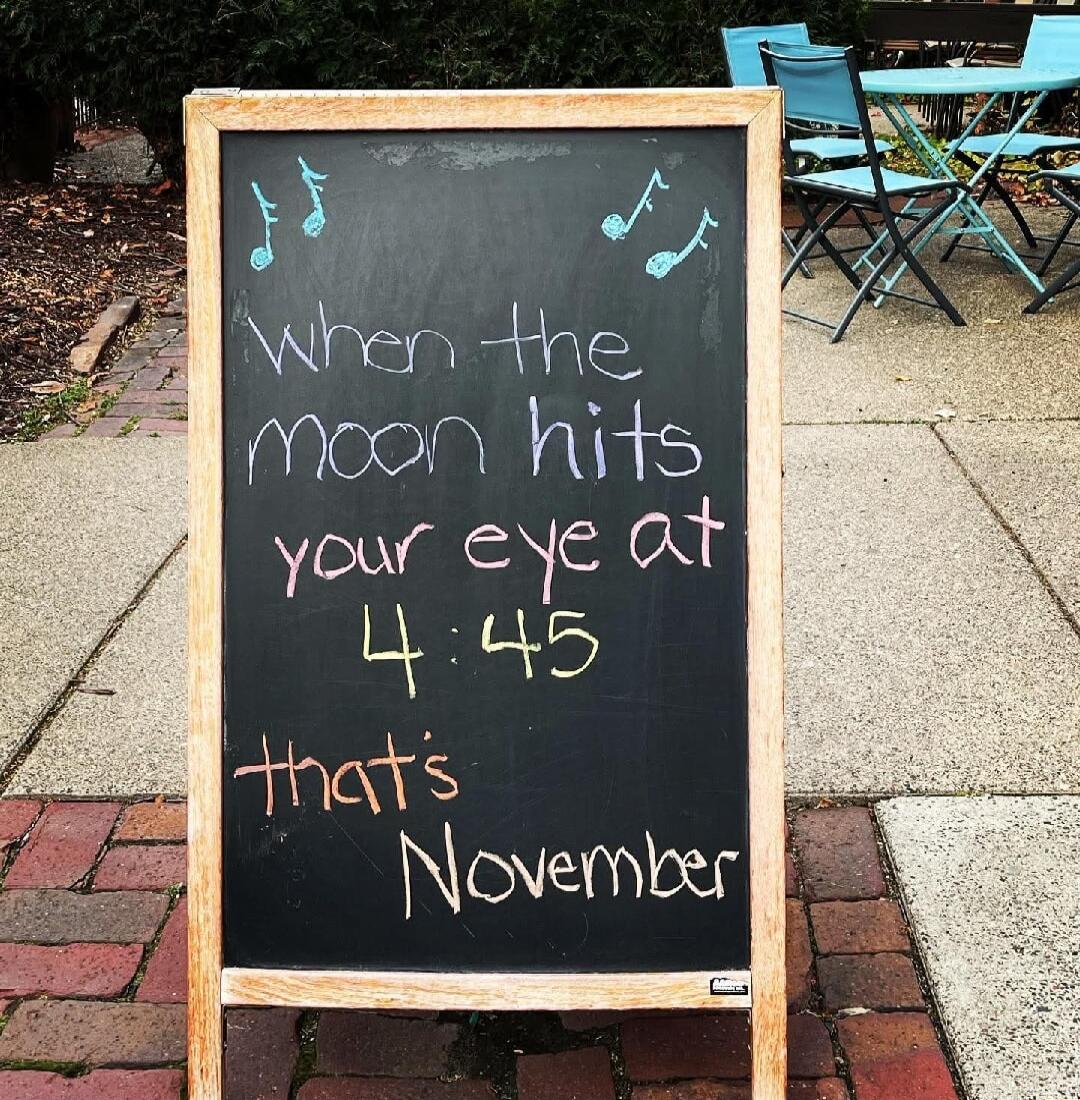 when the
moon hits
your eye at
4:45
that's
November